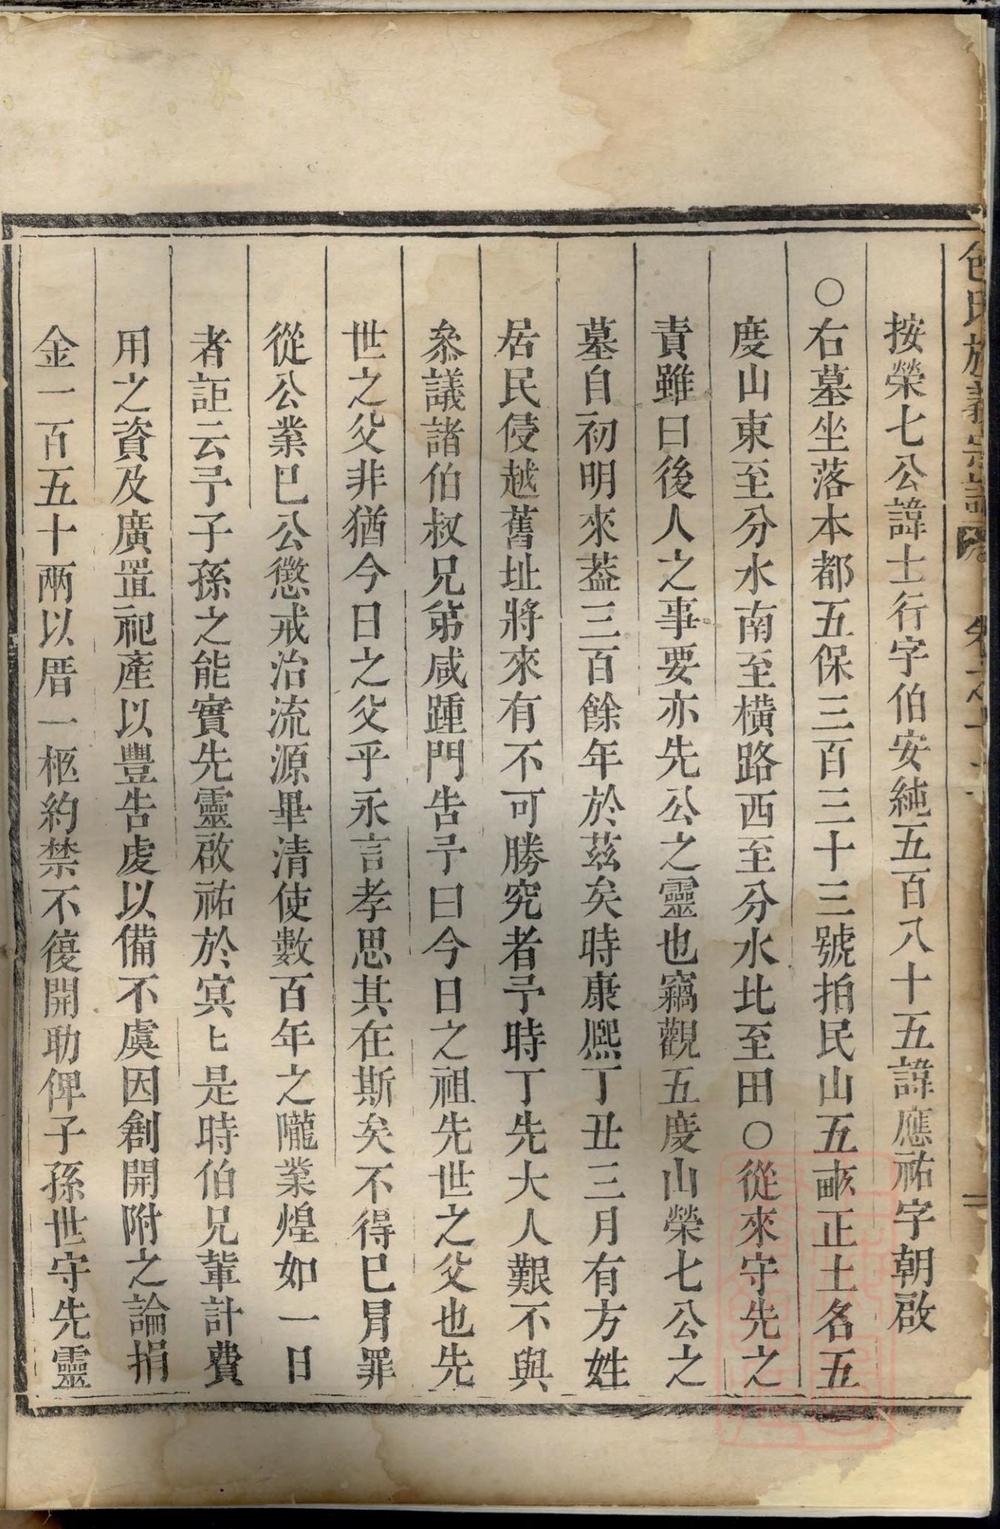 包氏族義宗譜
按榮七公諱士行字伯安純五百八十五諱應祐字朝啟
○右墓坐落本都五保三百三十三號拍民山五畝正土名五
度山東至分水南至橫路西至分水北至田○從來守先之
責雖曰後人之事要亦先公之靈也竊觀五度山榮七公之
墓自初明來葢三百餘年於茲矣時康熈丁丑三月有方姓
居民侵越舊址將來有不可勝究者予時丁先大人艱不與
叅議諸伯叔兄弟咸踵門告予曰今日之祖先世之父也先
世之父非猶今日之父乎永言孝思其在斯矣不得已冐罪
從公業巳公懲戒治流源畢清使數百年之隴業煌如一日
者詎云予子孫之能實先靈啟祐於㝠ヒ是時伯兄軰計費
用之資及廣置祀產以豐告處以備不虞因創開附之論捐
金一百五十兩以厝一柩約禁不復開助俾子孫世守先靈